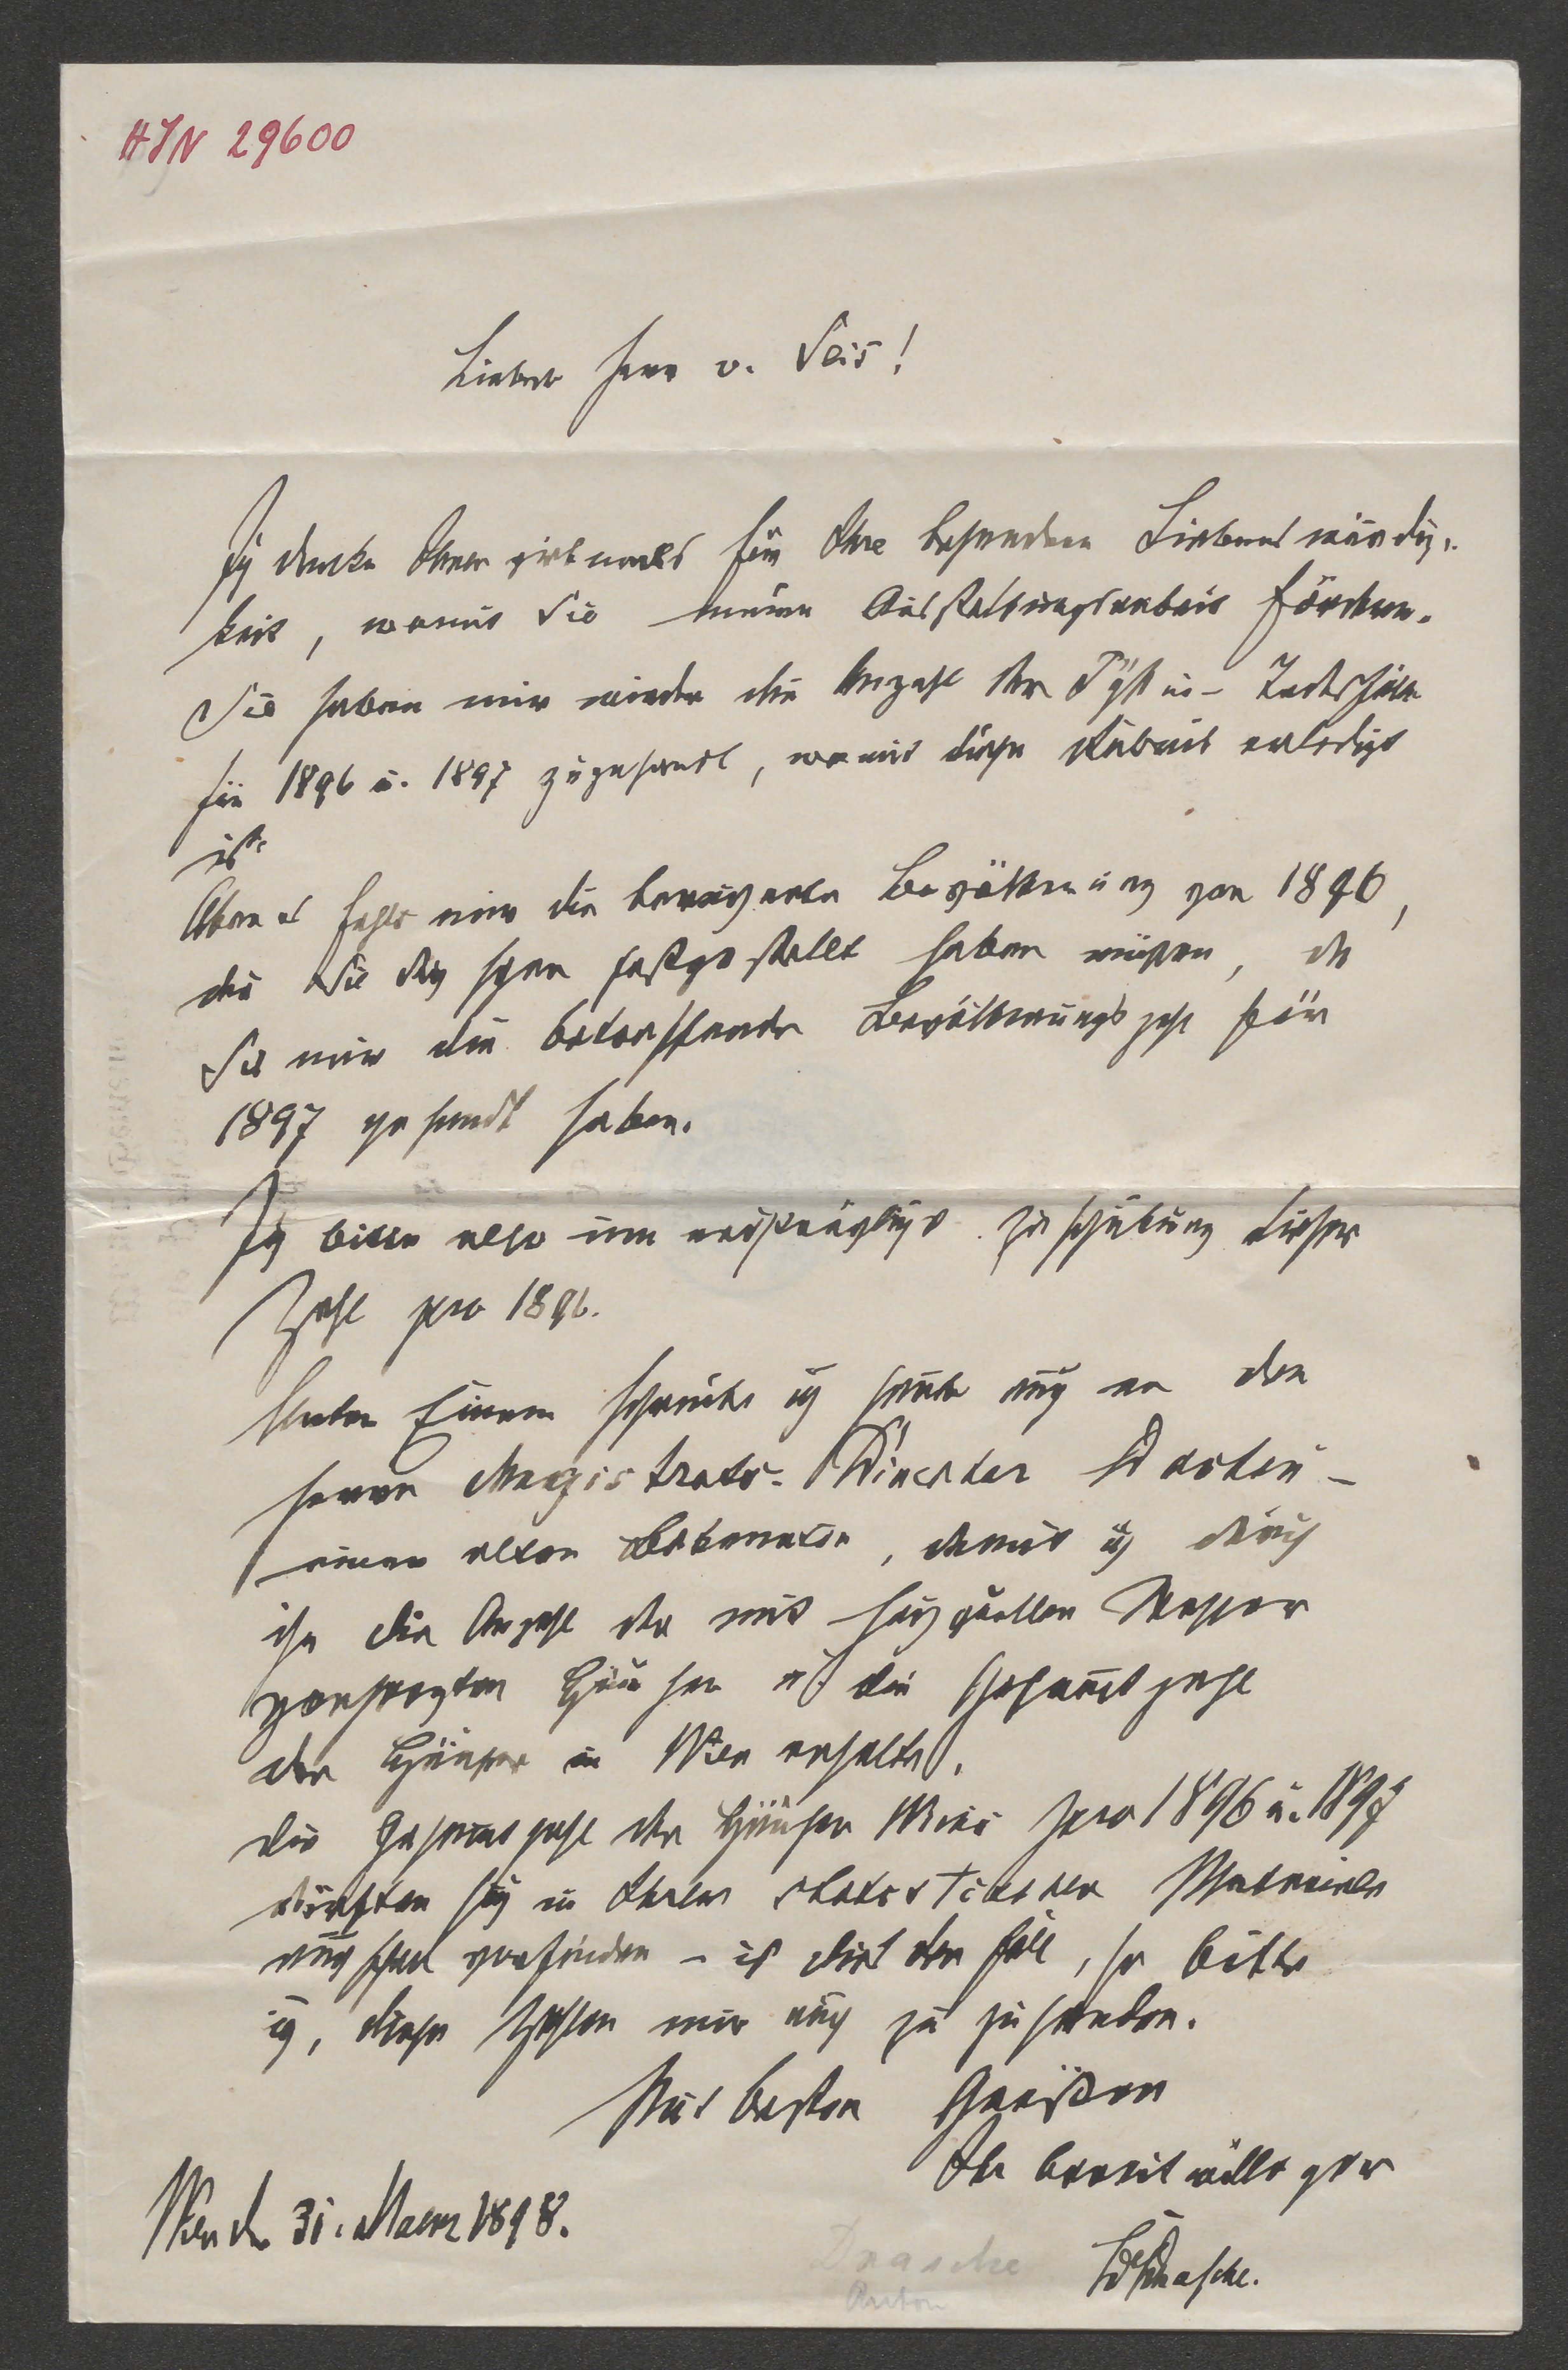 HIN 29600
Lieber Herr v. Seis!
Ich danke Ihnen vielmals für Ihre besondere Liebenswürdig-
keit, womit Sie meine Ausstellungsarbeit fördern.
Sie haben mir wieder die Anzahl der Typhus-Todesfälle
für 1896 u. 1897 zugesandt, womit diese Rubrik erledigt
ist.
Aber es fehlt mir die berechnete Bevölkerung von 1896,
die Sie doch schon festgestellt haben müssen, da
Sie mir die betreffende Bevölkerungszahl für
1897 gesandt haben.
Ich bitte also um nachträgliche Zuschickung dieser
Zahl pro 1896.
Unter Einem schreibe ich heute auch an den
Herrn Magistrats-Director
einen alten Bekannten, damit ich durch
ihn die Anzahl der mit Hochquellen Wasser
versorgten Häuser u. die Gesammtzahl
der Häuser in Wien erhalte.
Die Gesammtzahl der Häuser Wiens pro 1896 u. 1897
dürften sich in Ihrem statistischen Materiale
auch schon vorfinden – ist dies der Fall, so bitte
ich, diese Zahlen mir auch zu zusenden.
Mit besten Grüßen
Ihr bereitwilliger
Wien den 31. Maerz 1898.
Drasche.
Drasche
Anton